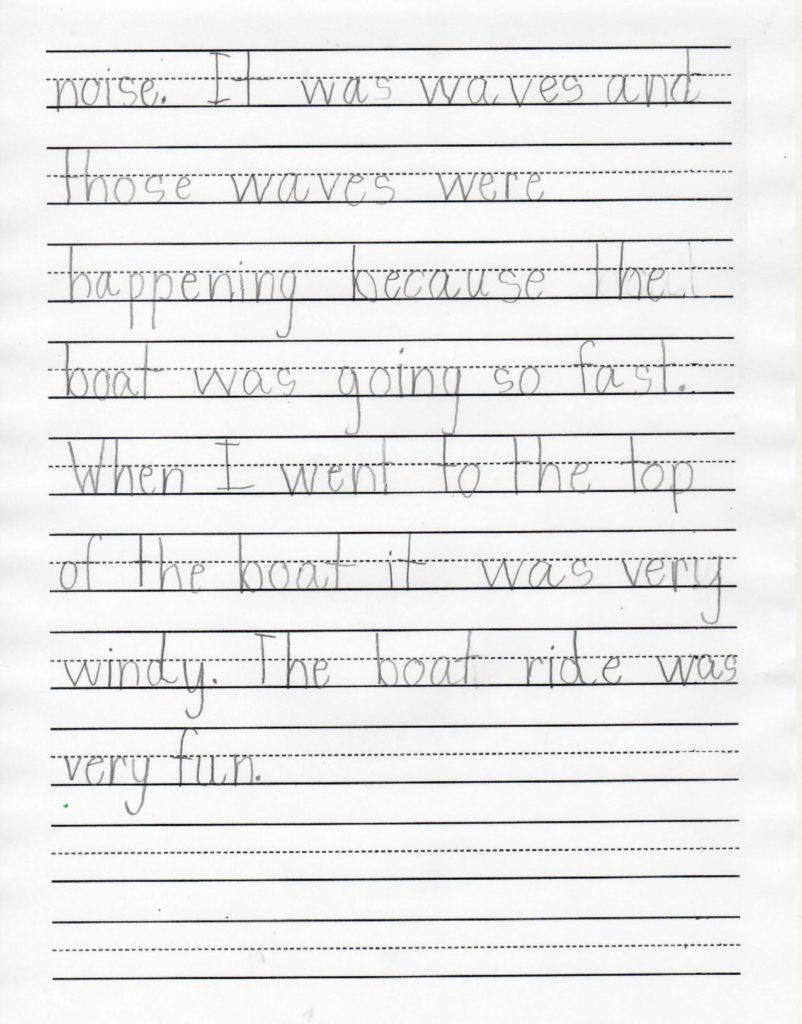 noise. It was waves and
those waves were
happening because the
boat was going so fast.
When I went to the top
of the boat it was very
windy. The boat ride was
very fun.